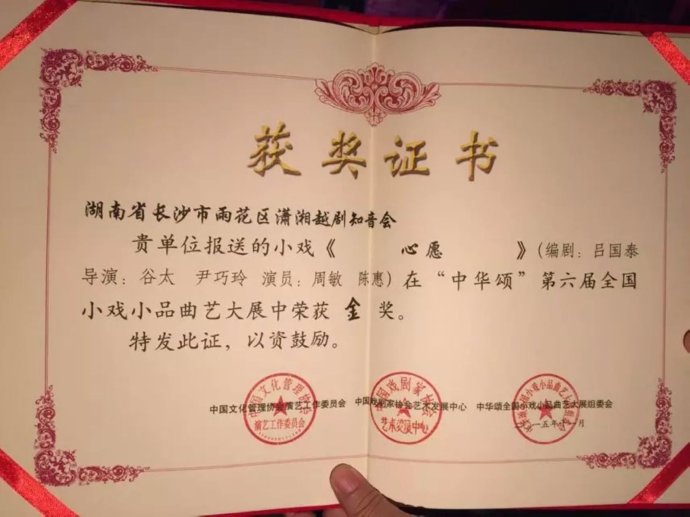 获奖证书
湖南省长沙市雨花区潇湘越剧知音会
贵单位报送的小戏《 心愿 》(编剧：吕国泰
导演：谷太 尹巧玲 演员：周敏 陈惠)在“中华颂”第六届全国
小戏小品曲艺大展中荣获 金 奖。
特发此证，以资鼓励。
中国文化管理协会演艺工作委员会 中国戏剧家协会艺术发展中心 中华颂全国小戏小品曲艺大展组委会
演艺工作委员会 艺术发展中心 一五年